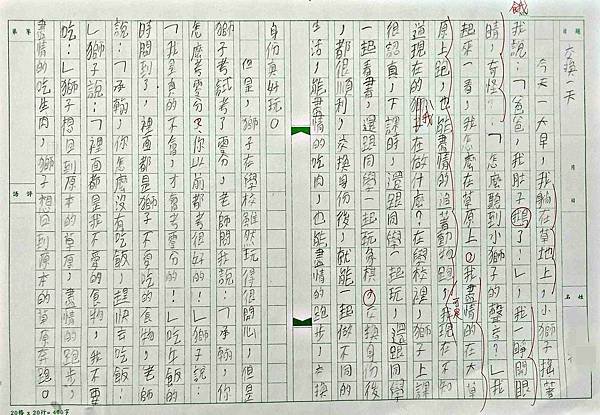 題目
交換一天
月 日
姓名
今天一大早,我躺在草地上,小獅子搖著
我說:「爸爸,我肚子餓了!」,我一睜開眼
睛,奇怪?「怎麼聽到小獅子的聲音?」我
起來一看,我怎麼在草原上。我盡情的在大草
原上跑,也能盡情的追著動物跑,我現在不知
道現在的獅子我在做什麼?在學校裡,獅子上課
很認真,下課時,還跟同學一起玩,還跟同學
一起看書,還跟同學一起玩象棋。交換身份後
,都很順利,交換身份後,就能一起做不同的
生活,能盡情的吃肉,也能盡情的跑步,交換
身份真好玩。
但是,獅子在學校雖然玩得很開心,但是
獅子考試考了零分,老師問我說:「承翰,你
怎麼考零分?你以前都考很好!」獅子說:
「我是真的不會,才會考零分!」吃午飯
時間到了,裡面都是獅子不愛吃的食物,老師
說:「承翰,你怎麼沒有吃飯,趕快去吃飯:
」獅子說:「裡面都是我不愛的食物,我不要
吃:」獅子想回到原本的草原,盡情的跑步,
盡情的吃生肉,獅子想回到原本的草原奔跑。
等第
評語
20格×20行=400字